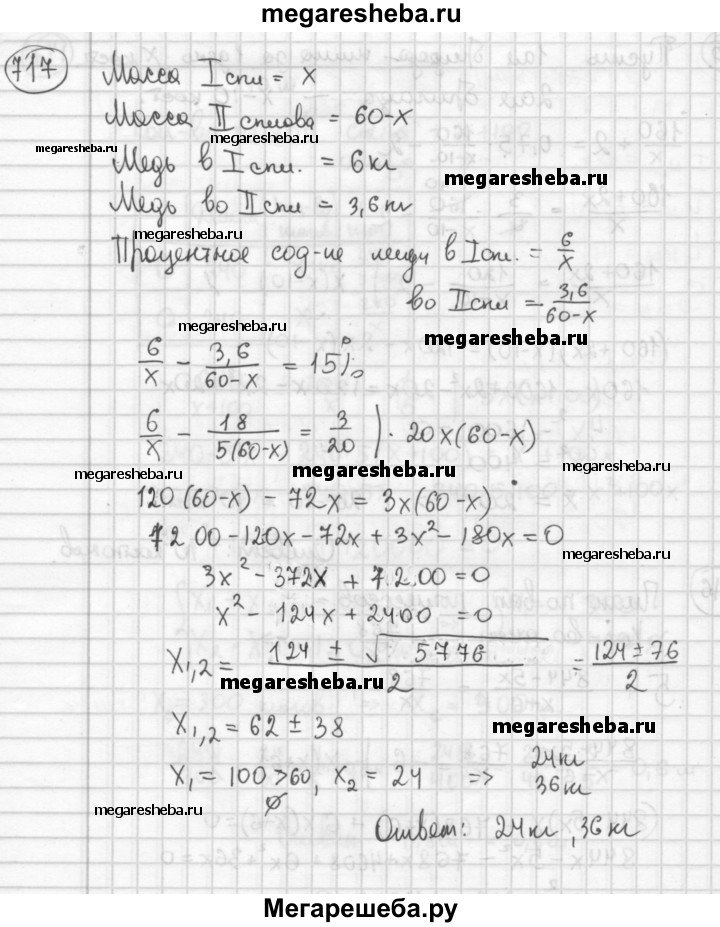 megaresheba.ru
717
Масса I спл = x
Масса II сплава = 60-x
megaresheba.ru
megaresheba.ru
Медь в I спл. = 6 кг
megaresheba.ru
Медь во II спл = 3,6 кг
megaresheba.ru
Процентное сод-ие меди в I сп. = 6/x
во II спл = 3,6/(60-x)
megaresheba.ru
megaresheba.ru
6/x - 3,6/(60-x) = 15%
6/x - 18/(5(60-x)) = 3/20 ) · 20x(60-x)
megaresheba.ru
megaresheba.ru
megaresheba.ru
120(60-x) - 72x = 3x(60-x)
7200 - 120x - 72x + 3x² - 180x = 0
megaresheba.ru
3x² - 372x + 7200 = 0
x² - 124x + 2400 = 0
x₁,₂ = (124 ± √5776)/2 = (124 ± 76)/2
megaresheba.ru
x₁,₂ = 62 ± 38
megaresheba.ru
x₁ = 100 > 60, x₂ = 24 => 24 кг
36 кг
∅
megaresheba.ru
Ответ: 24 кг, 36 кг
Мегарешеба.ру